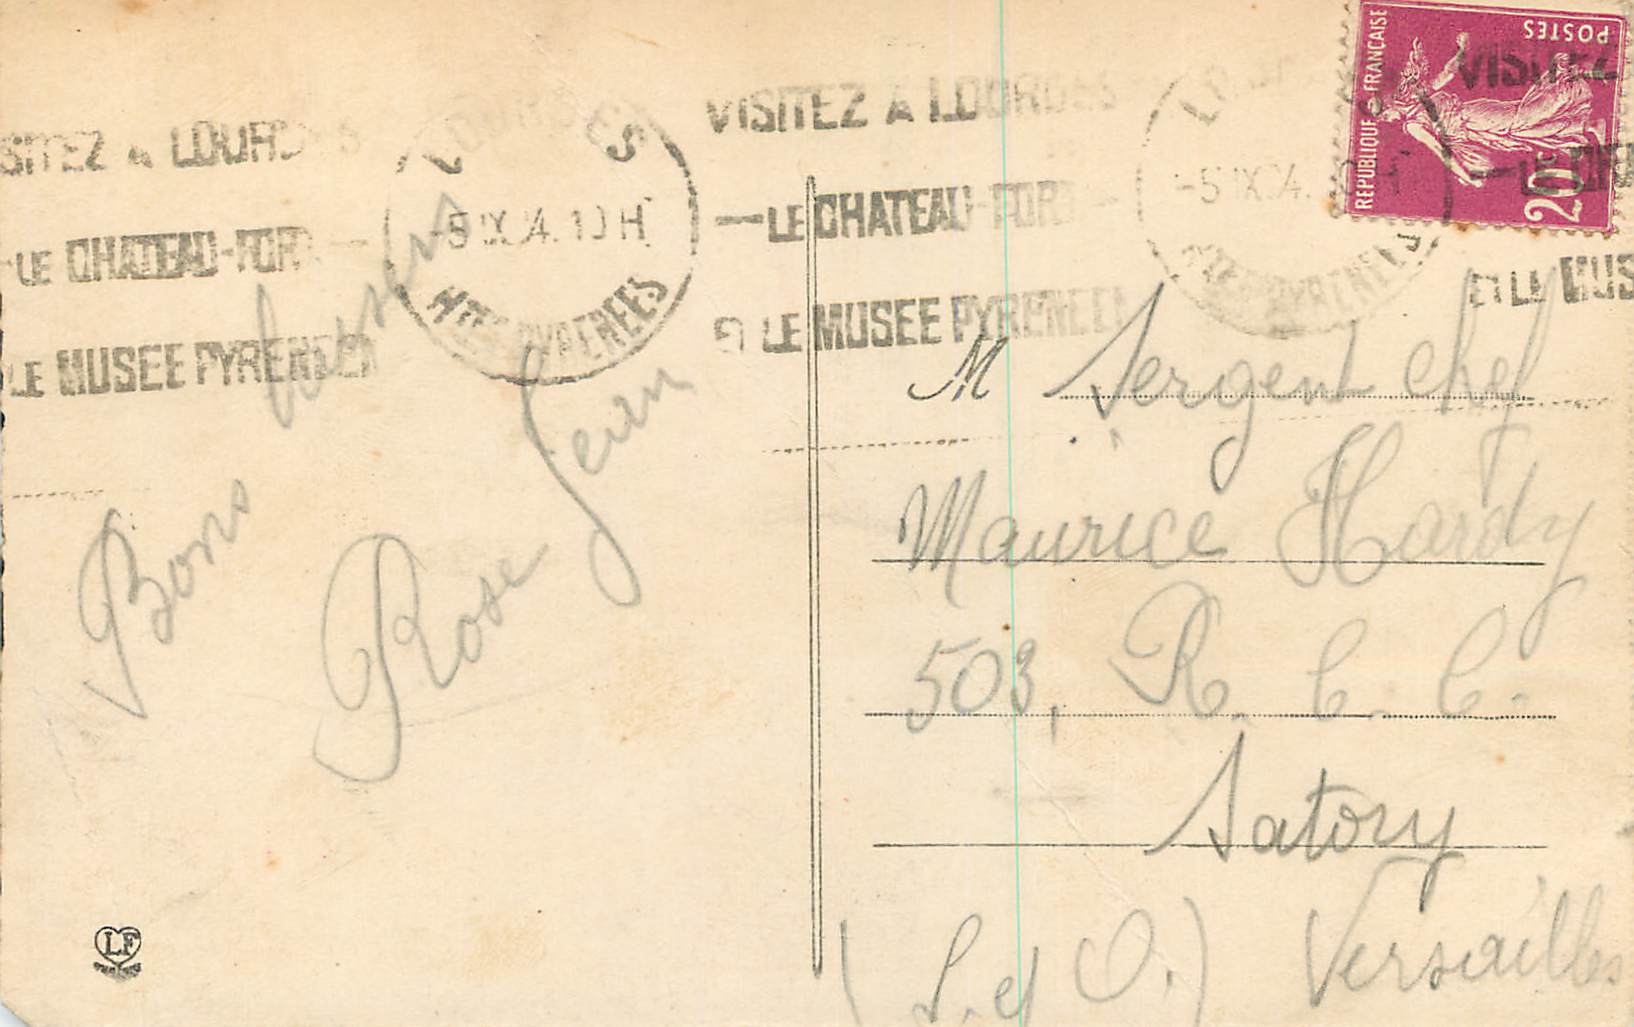 VISITEZ A LOURDES
LE CHATEAU-FORT
ET LE MUSEE PYRENEEN
LOURDES
-5 IX 34. 10 H
HTES PYRENEES
VISITEZ A LOURDES
—LE CHATEAU-FORT—
ET LE MUSEE PYRENEEN
LOURDES
-5 IX 34.
HTES PYRENEES
VISITEZ
—LE CH
ET LE MUS
REPUBLIQUE FRANÇAISE
POSTES
20c
Bons baisers
Rose Jean
M Sergent Chef
Maurice Hardy
503, R. C. C.
Satory
(S. et O.) Versailles
LF